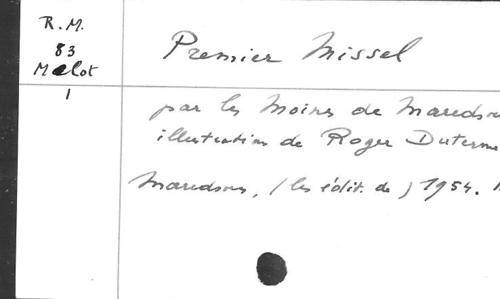 R. M.
83
Melot
1
Premier Missel
par les Moines de Maredsou
illustration de Roger Duterme
Maredsous, (les édit. de) 1954.